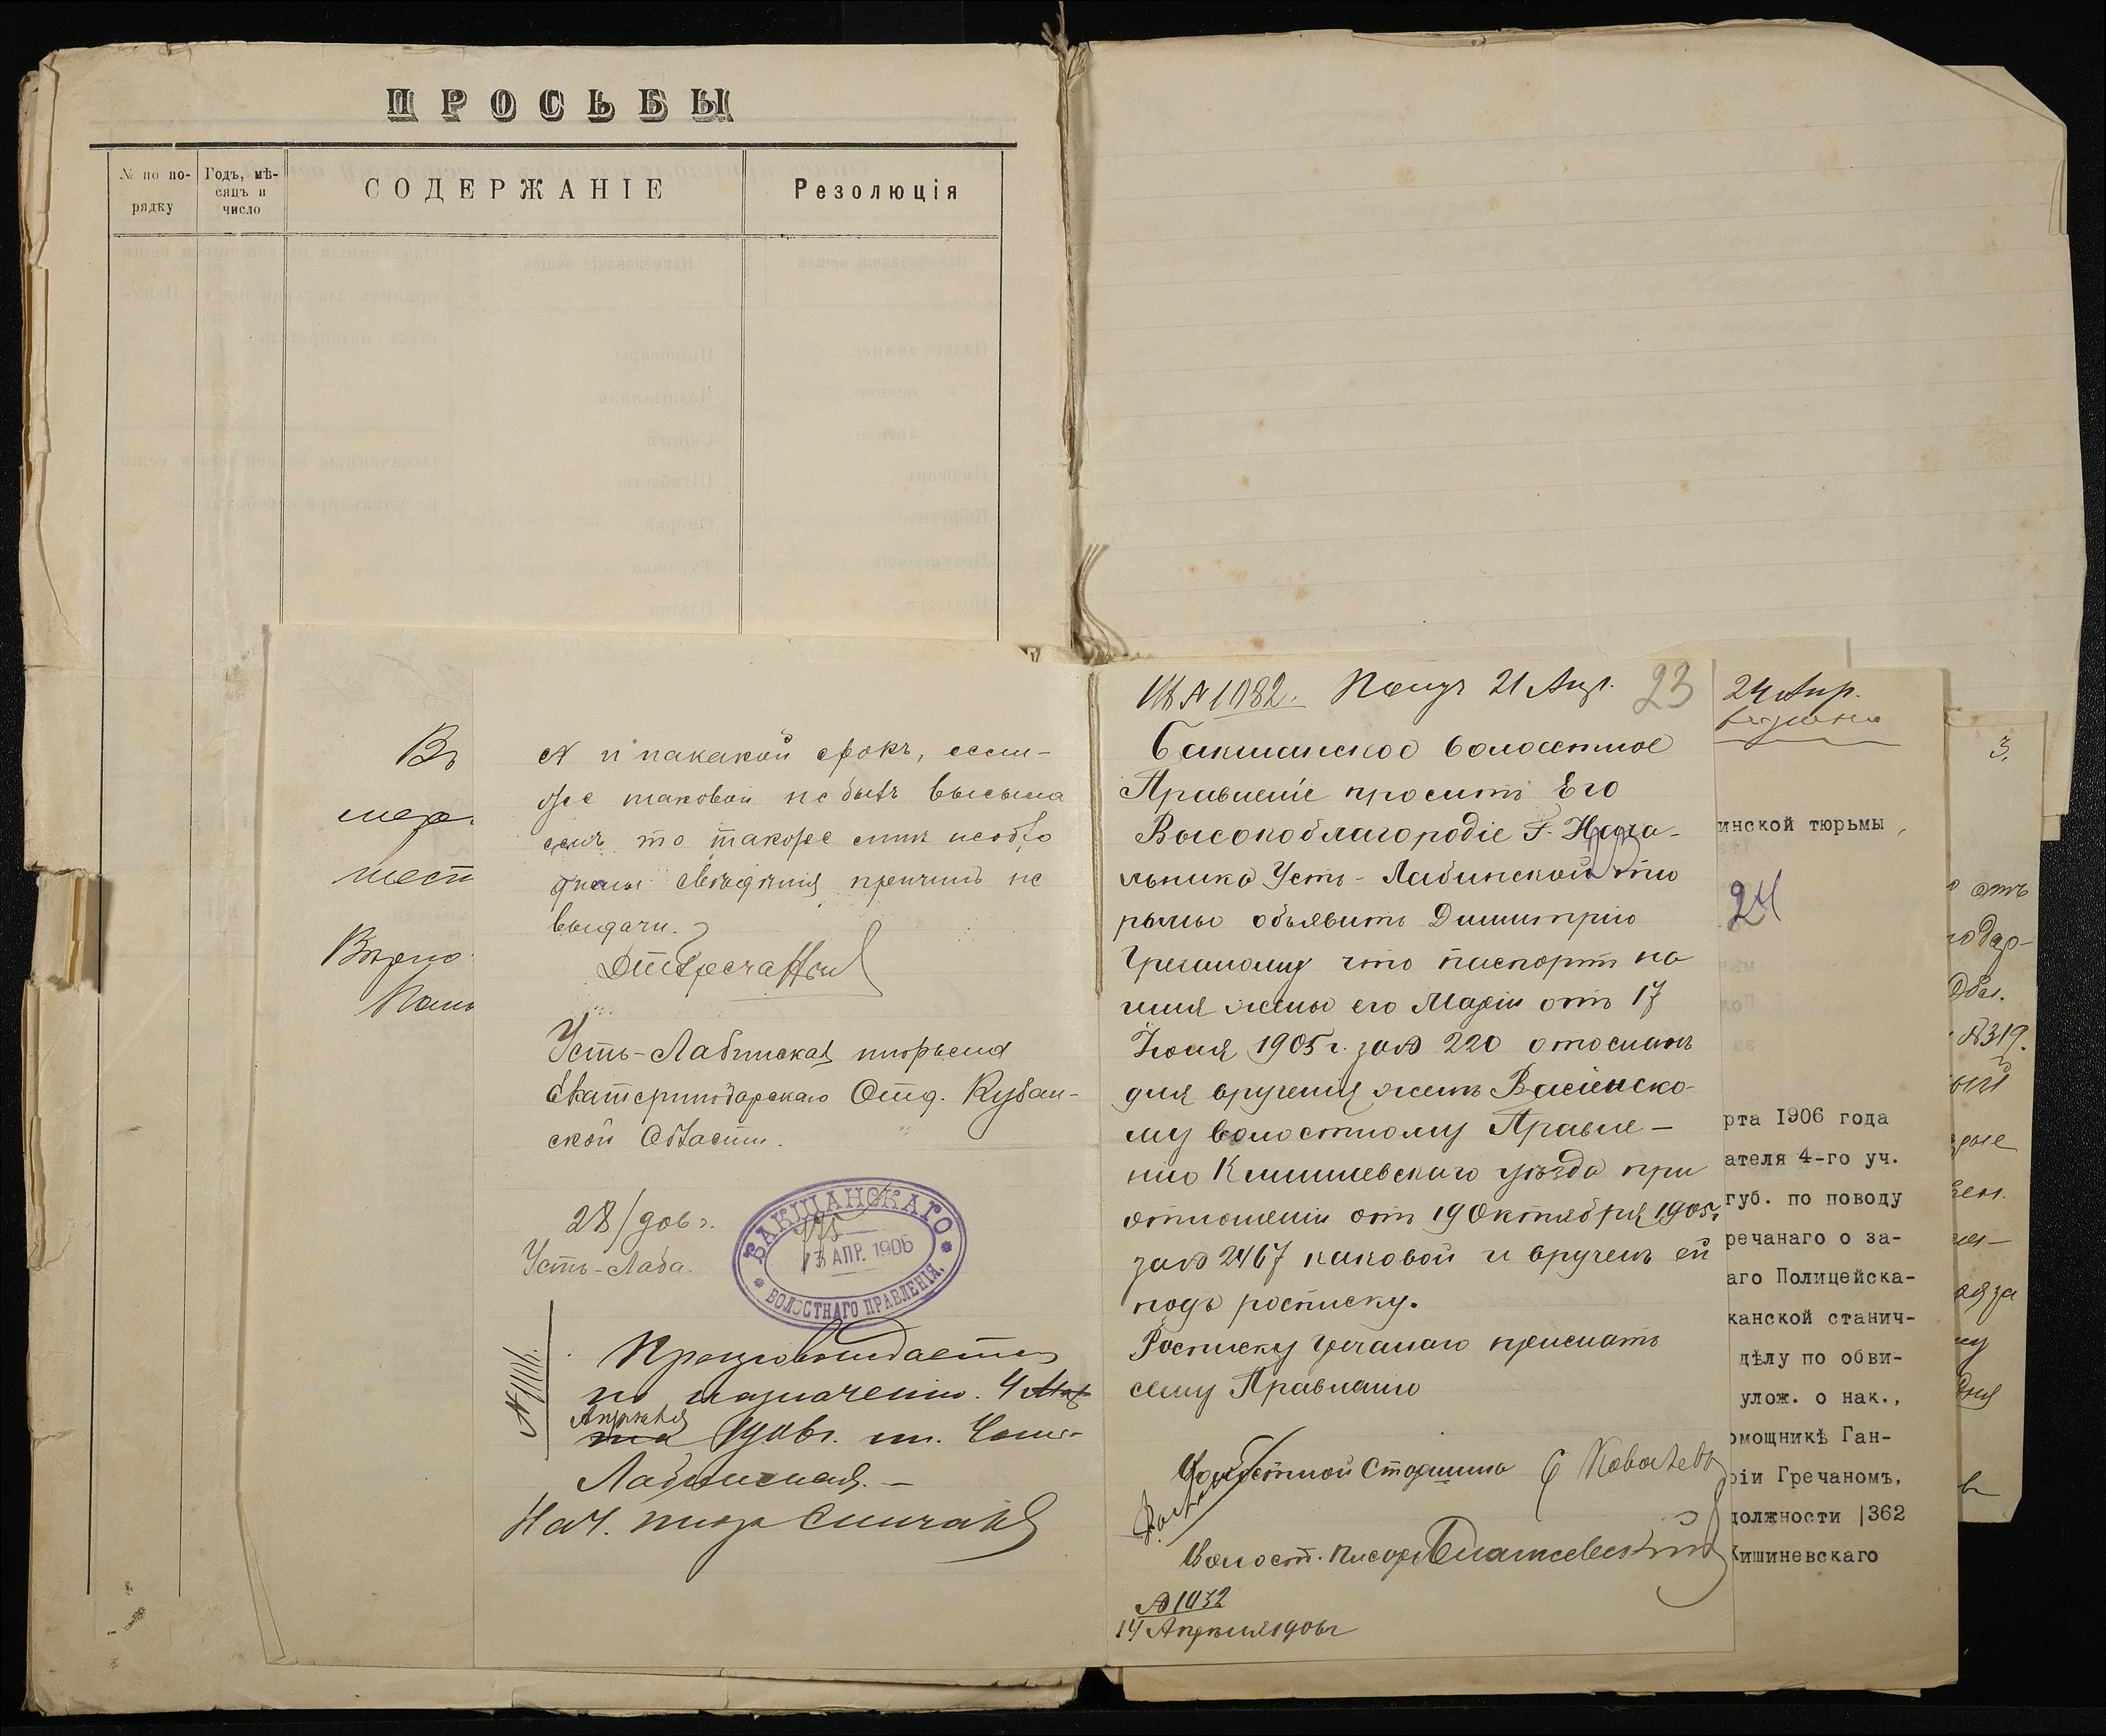 ПРОСЬБЫ
№ по по-
рядку
Годъ, мѣ-
сяцъ и
число
СОДЕРЖАНІЕ
Резолюція
Въ
шест
Вѣрно
№ и на какой срокъ, если-
же таковой не былъ высыла
емъ то также мнѣ необхо
димы свѣденія причинъ не
выдачи.
Д Гречаный
Усть-Лабинская тюрьма
Екатеринодарскаго Отд. Кубан-
ской Области.
28/ 906 г.
Усть-Лаба.
БАКЩАНСКАГО
13 АПР. 1906
ВОЛОСТНАГО ПРАВЛЕНІЯ.
Препровождается
по назначенію. 4 Мар
Апрѣля
та 1906 г. ст. Усть-
Лабинская. —
Нач. тюр
Вх № 1082. Получ 21 Апр. 23
Бакшанское волостное
Правленіе проситъ Его
Высокоблагородіе Г. Нача-
льника Усть-Лабинской тю
рьмы объявить Димитрію
Гречаному что паспортъ на
имя жены его Маріи отъ 17
Іюня 1905 г. за № 220 отосланъ
для врученія женѣ Васіенско-
му волостному Правле-
нію Кишиневскаго уѣзда при
отношеніи отъ 19 Октября 1905 г.
за № 2467 каковой и врученъ ей
подъ росписку.
Росписку Гречанаго прислать
сему Правленію
Волостной Старшина Е Ковалевъ
Волост. Писарь
№ 1032
14 Апрѣля 1906 г
24 Апр.
инской тюрьмы,
24
рта 1906 года
ателя 4-го уч.
губ. по поводу
речанаго о за-
аго Полицейска-
канской станич-
дѣлу по обви-
улож. о нак.,
омощникѣ Ган-
ріи Гречаномъ,
должности |362
Кишиневскаго
3.
отъ
одар-
Обл.
№ 319.